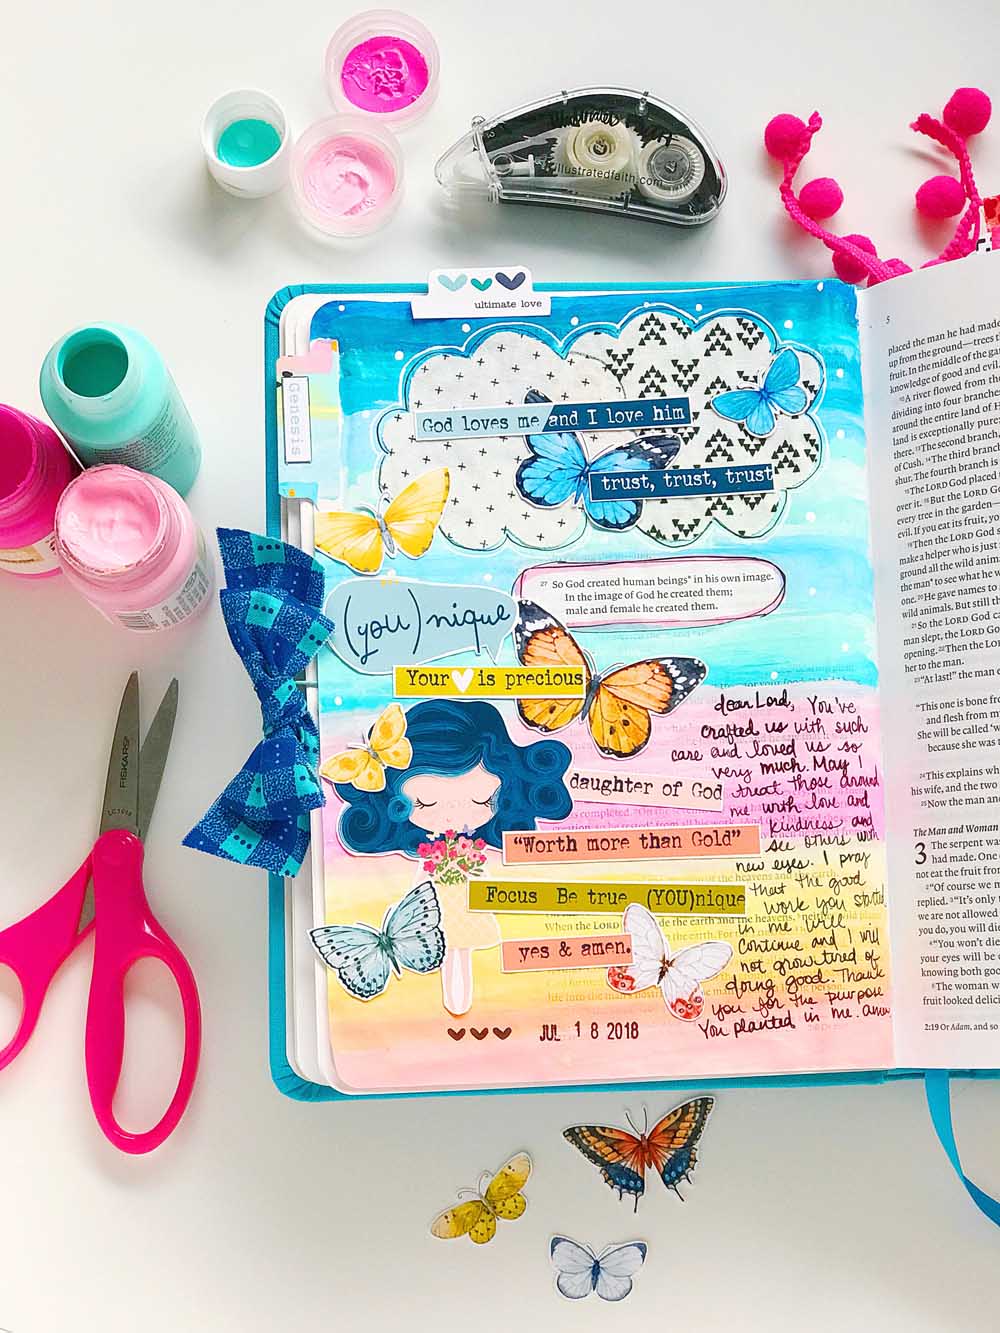 illustratedfaith.com
ultimate love
Genesis
God loves me and I love him
trust, trust, trust
27 So God created human beings* in his own image.
In the image of God he created them;
male and female he created them.
(you)nique
Your is precious
daughter of God
"Worth more than Gold"
Focus Be true (YOU)nique
yes & amen.
JUL 18 2018
dear Lord, You've
crafted us with such
care and loved us so
very much. May I
treat those around
me with love and
kindness and
see others with
new eyes. I pray
that the good
work you started
in me will
continue and I will
not grow tired of
doing good. Thank
you for the purpose
You planted in me. amen
FISKARS
5
placed the man he had made
up from the ground—trees th
fruit. In the middle of the gar
knowledge of good and evil.
10 A river flowed from the
dividing into four branches
around the entire land of
land is exceptionally pure;
there. 13 The second branch,
of Cush. 14 The third branch
shut. The fourth branch is
15 The LORD God placed
over it. 16 But the LORD G
every tree in the garden—
evil. If you eat its fruit, you
18 Then the LORD God s
make a helper who is just
ground all the wild animal
the man* to see what he w
one. 20 He gave names to
wild animals. But still the
21 So the LORD God ca
man slept, the LORD G
opening. 22 Then the LO
her to the man.
23 "At last!" the man
"This one is bone fro
and flesh from my
She will be called 'w
because she was
24 This explains wh
his wife, and the two
25 Now the man and
The Man and Woman
3 The serpent was
had made. One
not eat the fruit from
2 "Of course we m
replied. 3 "It's only t
we are not allowed
do, you will die
4 "You won't die
your eyes will be o
knowing both goo
6 The woman w
fruit looked delici
2:19 Or Adam, and so